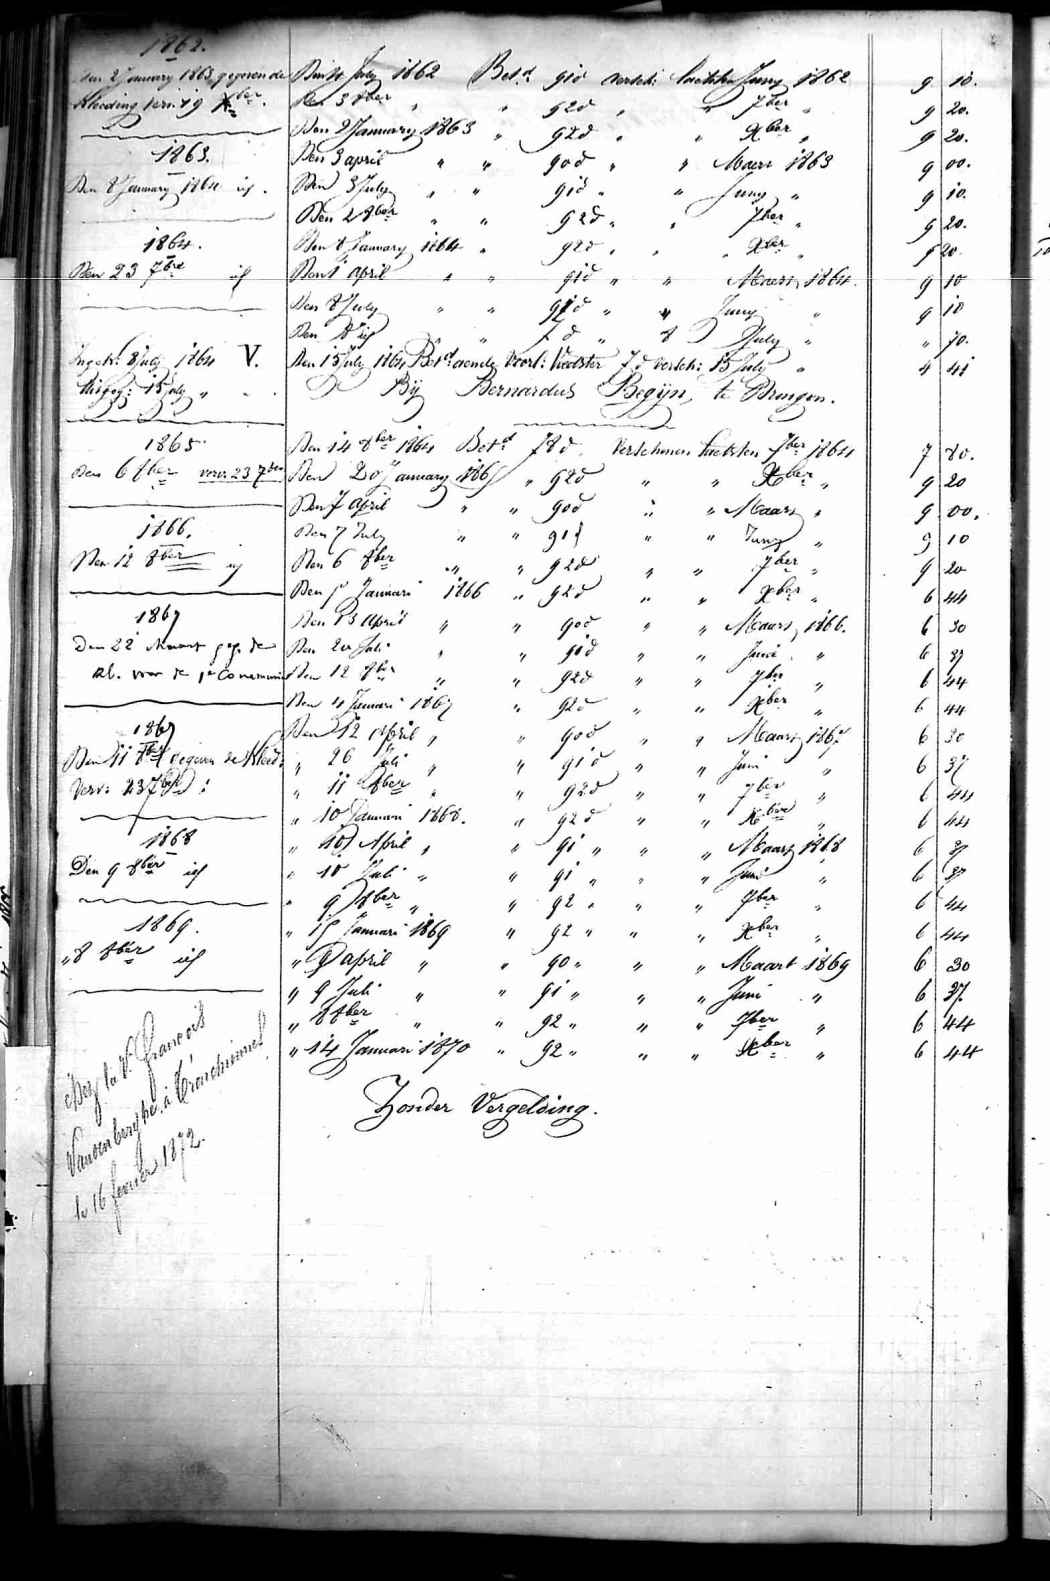 1862.
den 2 January 1863 gegeven de
kleeding vern: 19 Xber.
1863.
Den 8 January 1864 id.
1864.
Den 23 7bre id
Ingetr: 8 July 1864 V.
Uitgeg: 15 July "
1865
Den 6 8ber voor 23 7ber
1866.
Den 12 8ber id
1867
Den 22 Maart geg. de
kl. voor de 1e Communie
1867
Den 11 8ber gegeven de kleed:
Verv: 23 7ber :
1868
Den 9 8ber id
1869.
" 8 8ber id
chez la V. Francois
Vandenberghe à Tronchiennes
le 16 fevrier 1872.
Den 4 July 1862 Bet.d 91 d versch: laetsten Juny 1862 9 10.
Den 3 8ber " " 92 d " " 7ber " 9 20.
Den 2 January 1863 " 92 d " " Xber " 9 20.
Den 3 april " " 90 d " " Maert 1863 9 00.
Den 3 July " " 91 d " " Juny " 9 10.
Den 2 8ber " " 92 d " " 7ber " 9 20.
Den 8 January 1864 " 92 d " " Xber " 9 20.
Den 1 april " " 91 d " " Maert 1864. 9 10
Den 8 July " " 91 d " " Juny " 9 10
Den 8 id " " 7 d " " July " " 70.
Den 15 July 1864 Bet.d aende Voort: 7 d versch: 15 July " 4 41
Bij Bernardus Begijn, te Drongen.
Den 14 8ber 1864 Bet.d 78 d. Verschenen laetsten 7ber 1864 7 80.
Den 20 January 1865 " 92 d " " Xber " 9 20
Den 7 april " " 90 d " " Maart " 9 00.
Den 7 July " " 91 d " " Juny " 9 10
Den 6 8ber " " 92 d " " 7ber " 9 20
Den Januari 1866 " 92 d " " Xber " 6 44
Den 13 April " " 90 d " " Maart 1866. 6 30
Den 20 Juli " " 91 d " " Juni " 6 37
Den 12 8ber " " 92 d " " 7ber " 6 44
Den 4 Januari 1867 " 92 d " " Xber " 6 44
Den 12 April " " 90 d " " Maart 1867 6 30
" 26 Juli " " 91 d " " Juni " 6 37
" 11 8ber " " 92 d " " 7ber " 6 44
" 10 Januari 1868. " 92 d " " Xber " 6 44
" 10 April " " 91 " " " Maart 1868 6 37
" 10 Juli " " 91 " " " Juni " 6 37
" 9 8ber " " 92 " " " 7ber " 6 44
" 15 Januari 1869 " 92 " " " Xber " 6 44
" 9 april " " 90 " " " Maart 1869 6 30
" 9 Juli " " 91 " " " Juni " 6 37.
" 8 8ber " " 92 " " " 7ber " 6 44
" 14 Januari 1870 " 92 " " " Xber " 6 44
Zonder Vergelding.